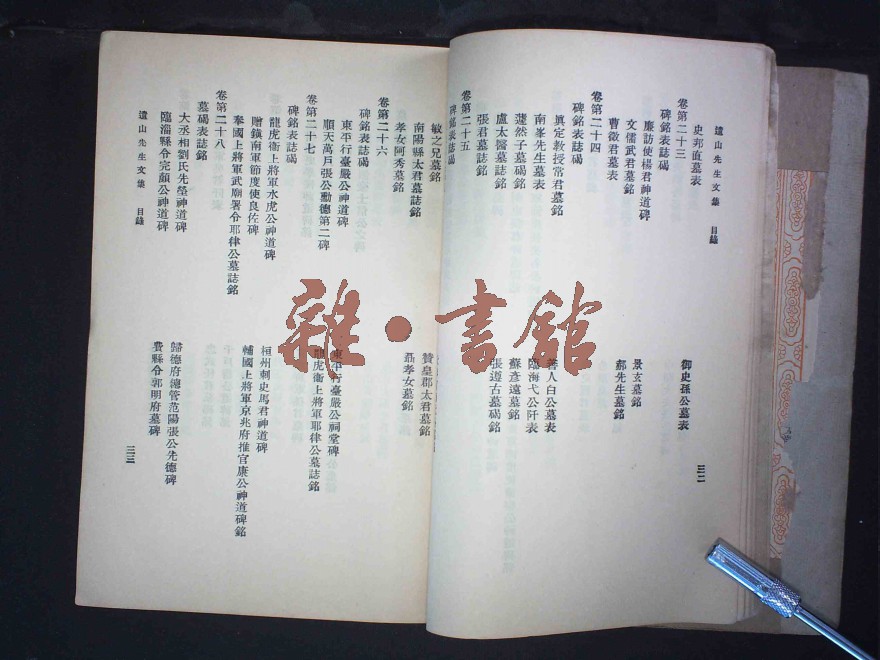 遺山先生文集 目錄 三二
史邦直墓表 御史孫公墓表
卷第二十三
碑銘表誌碣
廉訪使楊君神道碑
文儒武君墓銘 景玄墓銘
曹徵君墓表 郝先生墓銘
卷第二十四
碑銘表誌碣
眞定敎授常君墓銘 善人白公墓表
南峯先生墓表 臨海弋公阡表
蘧然子墓碣銘 蘇彥遠墓銘
盧太醫墓誌銘 張遵古墓碣銘
張君墓誌銘
卷第二十五
碑銘表誌碣
敏之兄墓銘 贊皇郡太君墓銘
南陽縣太君墓誌銘 聶孝女墓銘
孝女阿秀墓銘
卷第二十六
碑銘表誌碣
東平行臺嚴公神道碑 東平行臺嚴公祠堂碑
順天萬戶張公勳德第二碑 龍虎衞上將軍耶律公墓誌銘
卷第二十七
碑銘表誌碣
龍虎衞上將軍朮虎公神道碑 桓州刺史馬君神道碑
贈鎭南軍節度使良佐碑 輔國上將軍京兆府推官康公神道碑銘
奉國上將軍武廟署令耶律公墓誌銘
卷第二十八
墓碣表誌銘
大丞相劉氏先塋神道碑 歸德府總管范陽張公先德碑
臨淄縣令完顏公神道碑 費縣令郭明府墓碑
遺山先生文集 目錄 三三
雜·書館